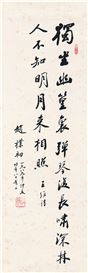 獨坐幽篁裏彈琴復長嘯深林
人不知明月来相照 王維詩
趙樸初